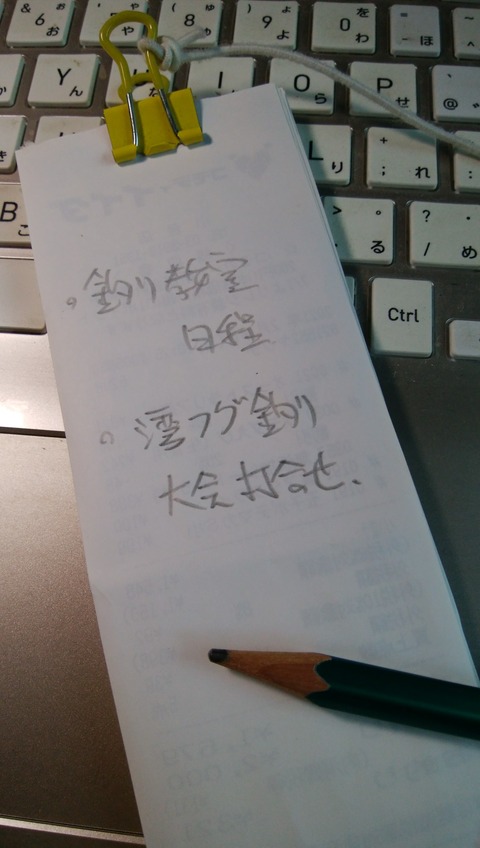 & 6 ぉ お ゃ や ( 8 ゅ ゆ ) 9 ょ よ 0 を わ = - ほ ~
Y ん I O ら P せ @
L り + ; れ
B こ > 。 . る ? ・ / め
Ctrl
。釣り教室
日程
。湾フグ釣り
大会打合せ、